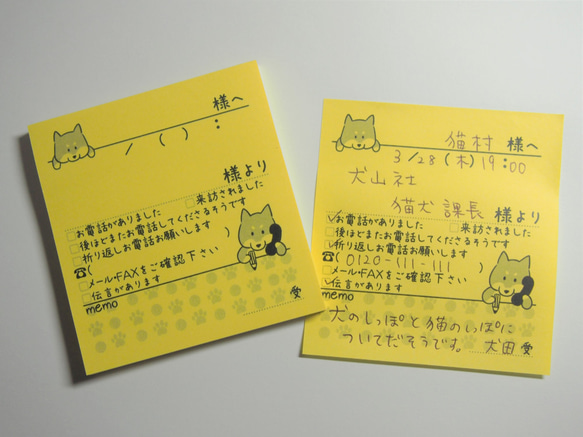 様へ
/ ( ) :
様より
□お電話がありました □来訪されました
□後ほどまたお電話してくださるそうです
□折り返しお電話お願いします
☎( )
□メール・FAXをご確認下さい
□伝言があります
memo
受
猫村 様へ
3/28(木)19:00
犬山社
猫犬 課長 様より
☑お電話がありました □来訪されました
□後ほどまたお電話してくださるそうです
☑折り返しお電話お願いします
☎(0120-111-111 )
□メール・FAXをご確認下さい
☑伝言があります
memo
犬のしっぽと猫のしっぽに
ついてだそうです。 犬田 受